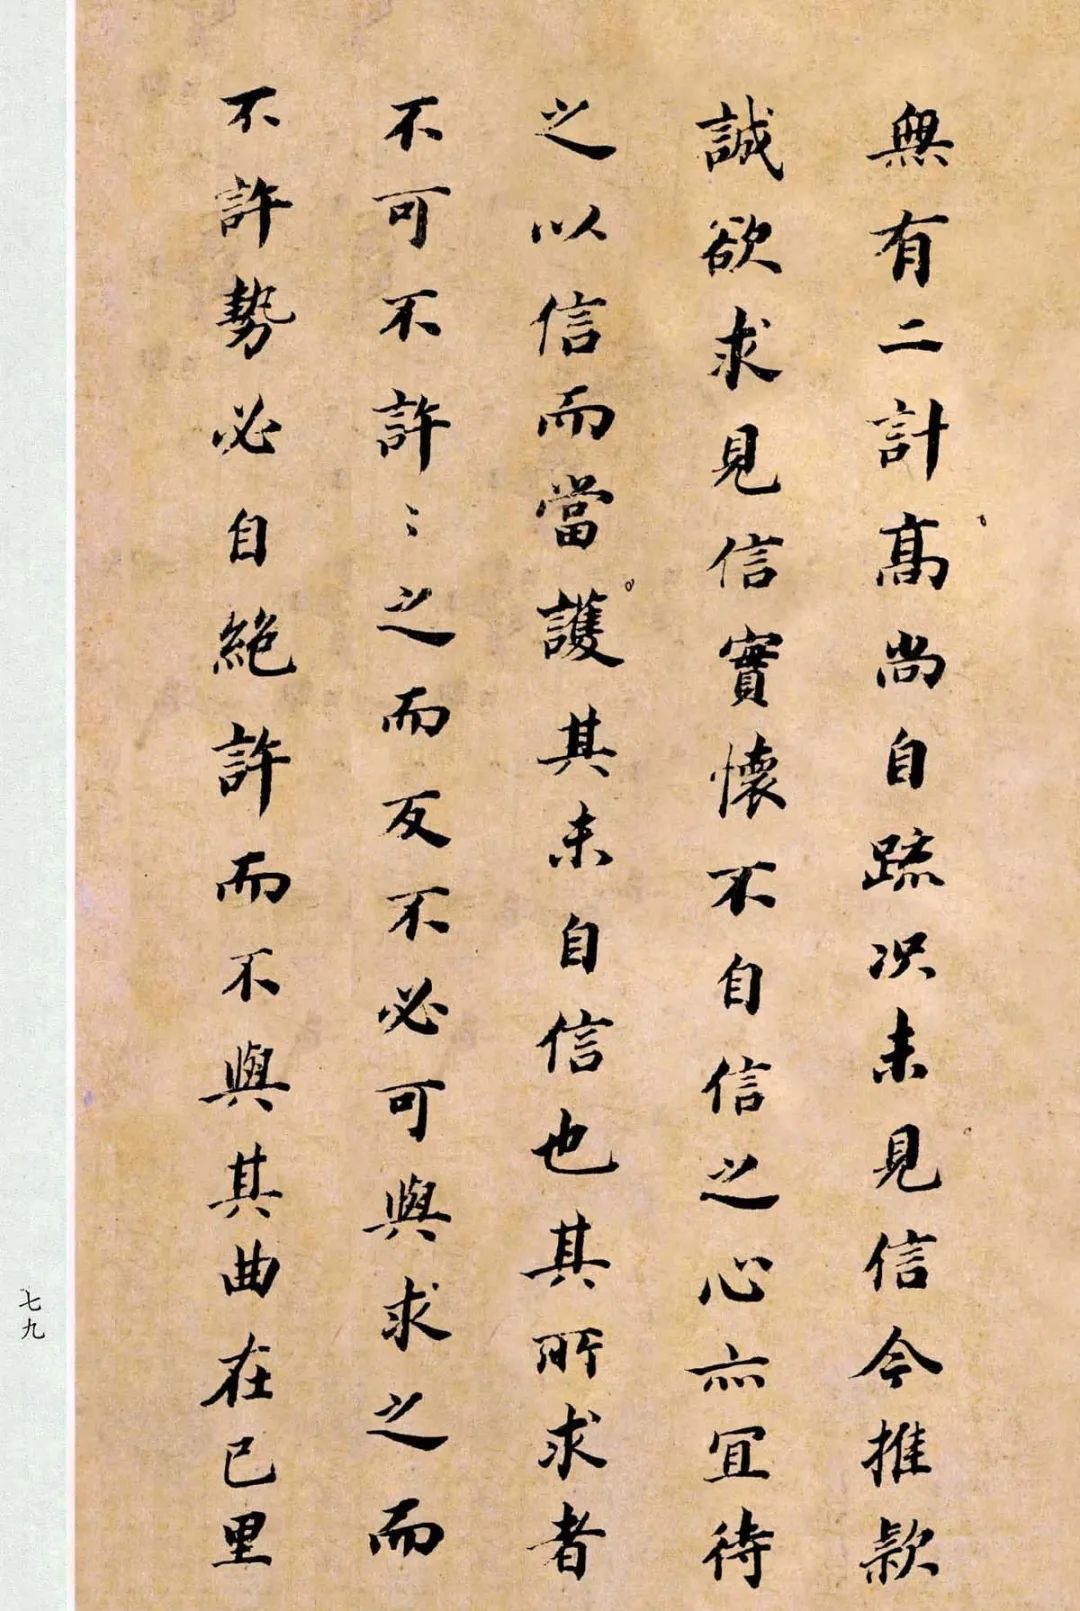 無有二計高尚自疏況未見信今推款
誠欲求見信實懷不自信之心亦宜待
之以信而當護其未自信也其所求者
不可不許〻之而反不必可與求之而
不許勢必自絕許而不與其曲在己里
七九